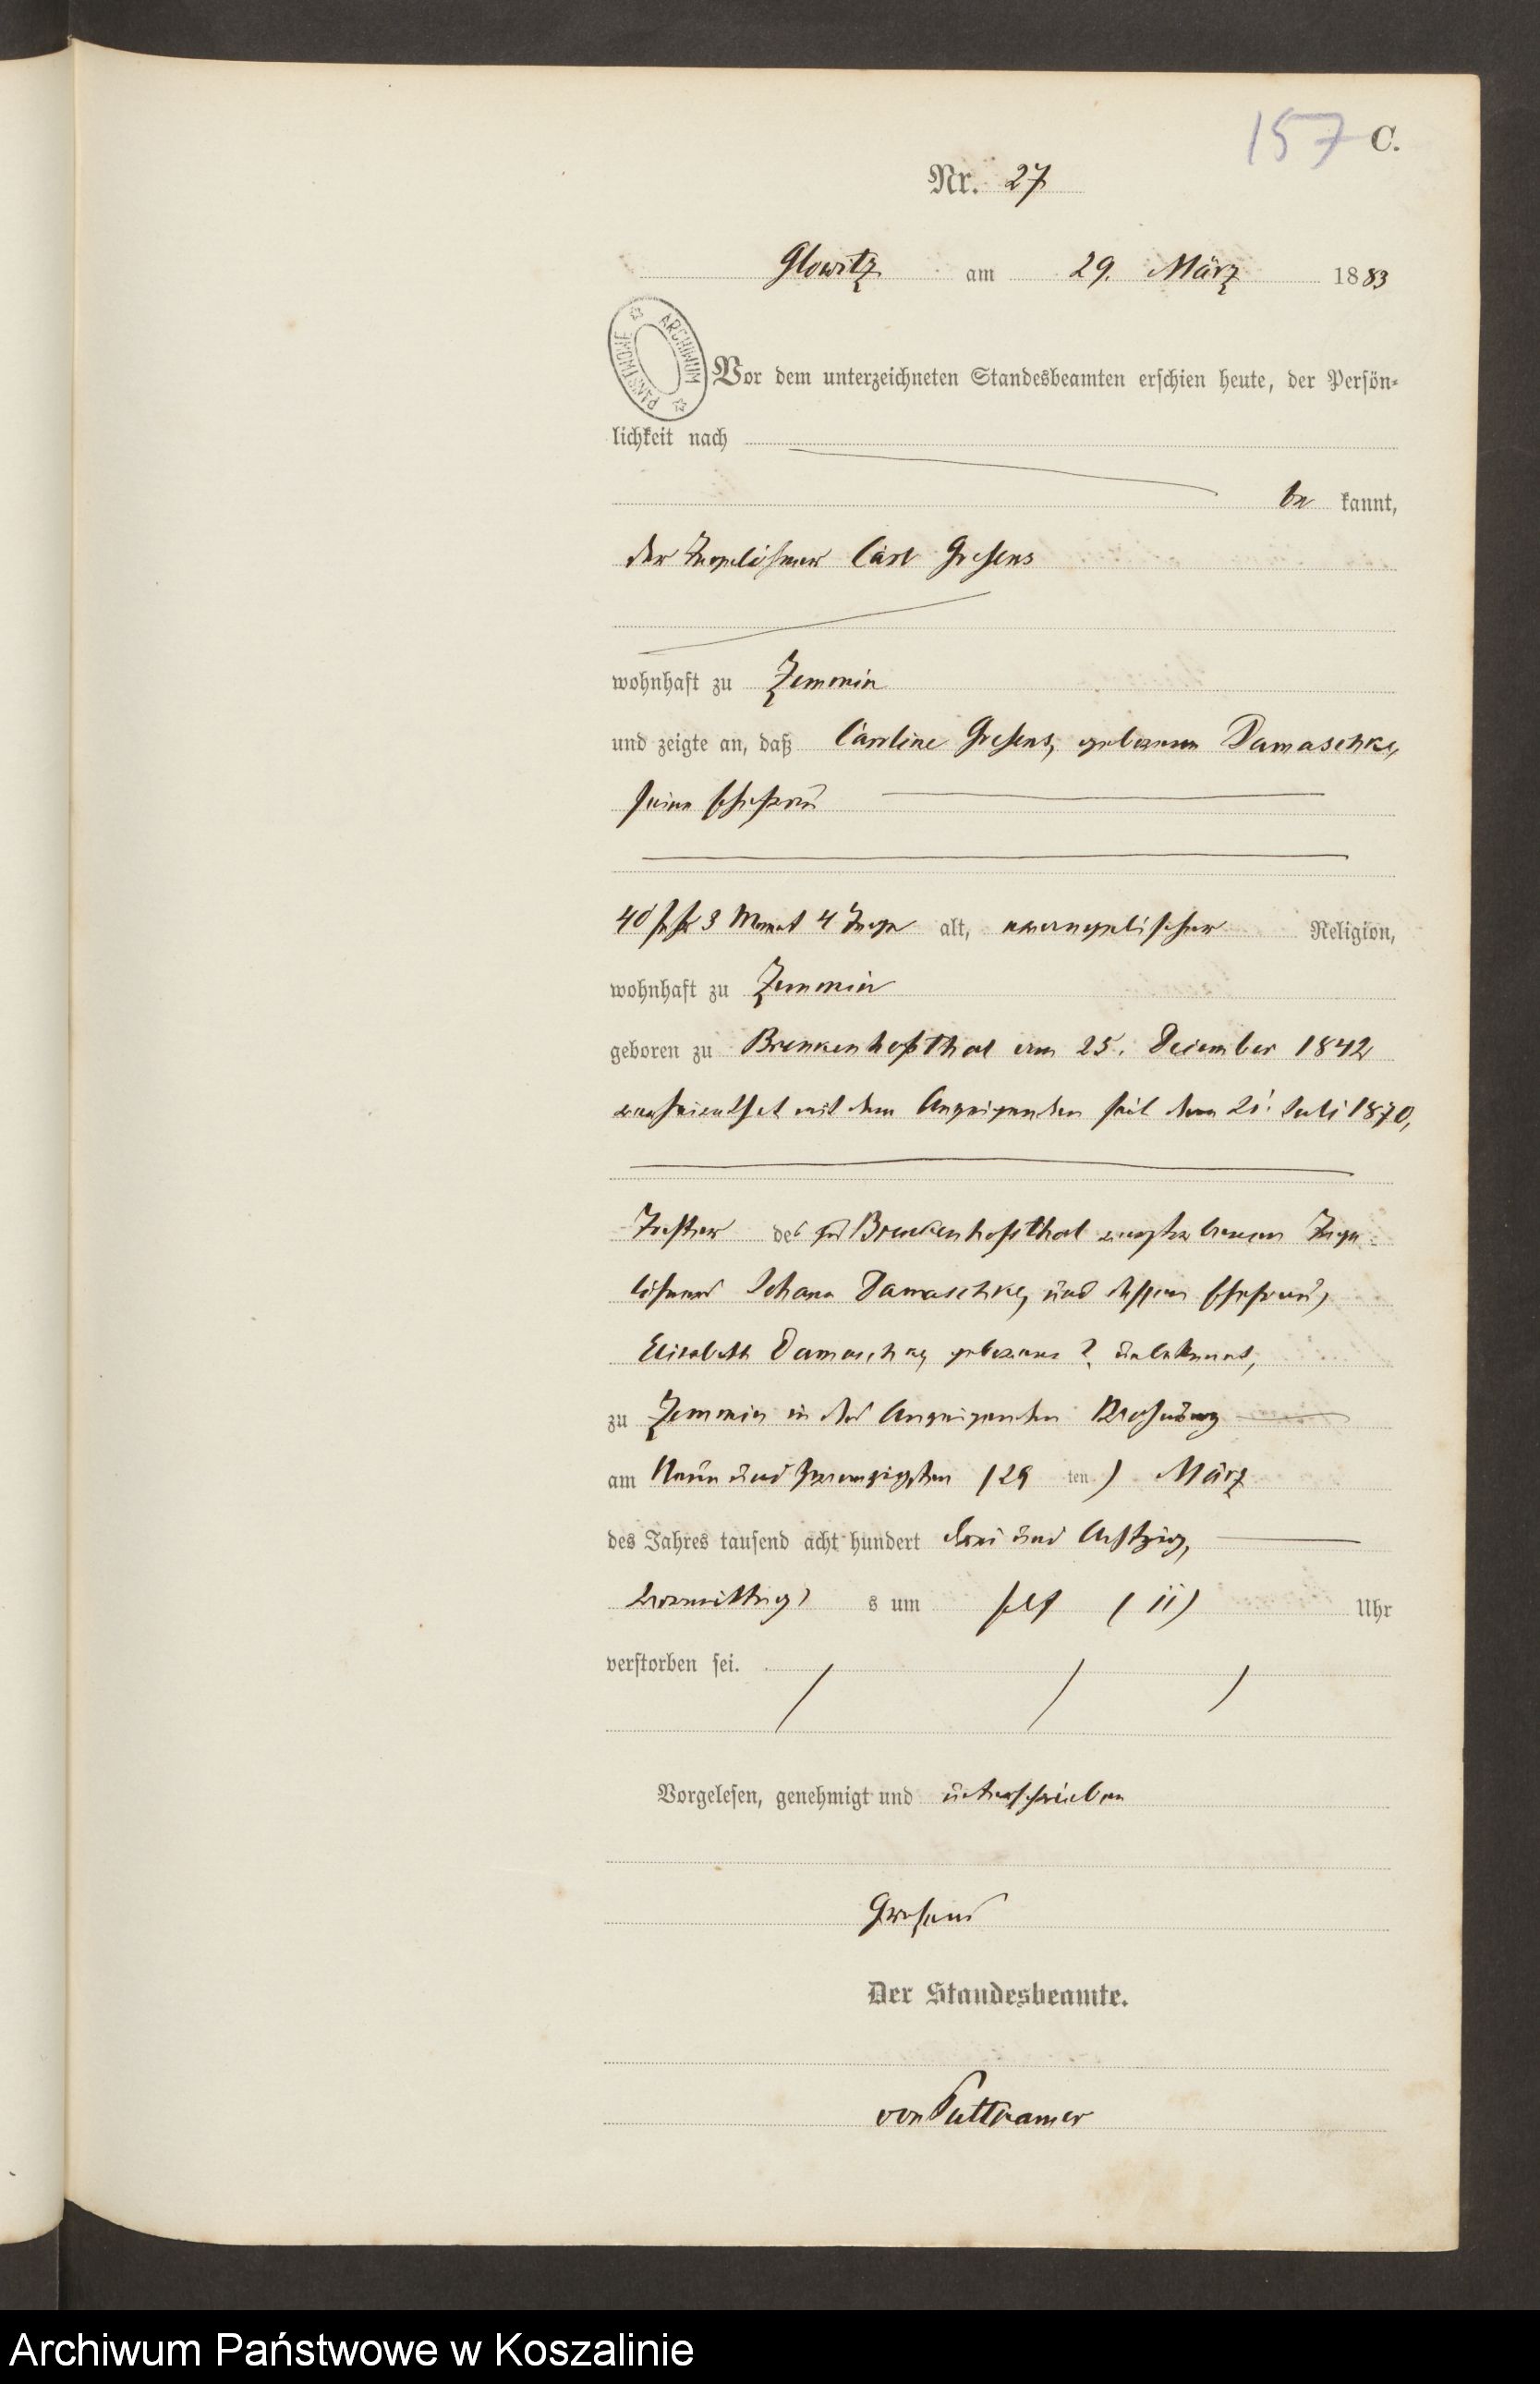 157 C.
Nr. 27
Glowitz am 29. März 1883
ARCHIWUM PAŃSTWOWE
Vor dem unterzeichneten Standesbeamten erschien heute, der Persön-
lichkeit nach
be kannt,
der Tagelöhner Carl Gresens
wohnhaft zu Zemmin
und zeigte an, daß Caroline Gresens, geborenen Damaschke,
seine Ehefrau
40 Jahr 3 Monat 4 Tage alt, evangelischer Religion,
wohnhaft zu Zemmin
geboren zu Brenkenhofsthal am 25. December 1842
verheirathet mit dem Anzeigenden seit dem 21. Juli 1870,
Tochter des zu Brenkenhofsthal verstorbenen Tage-
löhners Johann Damaschke, und dessen Ehefrau,
Elisabeth Damaschke, geborene ?, unbekannt,
zu Zemmin in des Anzeigenden Wohnung
am Neun und zwanzigsten (29 ten) März
des Jahres tausend acht hundert drei und Achtzig,
Vormittags um elf (11) Uhr
verstorben sei.
Vorgelesen, genehmigt und unterschrieben
Gresens
Der Standesbeamte.
von Puttkamer
Archiwum Państwowe w Koszalinie